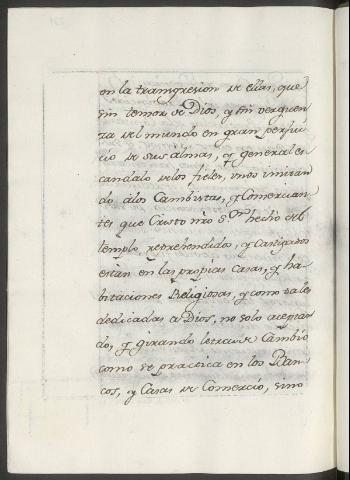 en la transgresion de ellas, que
sin temor de Dios, y sin verguen
za del mundo en gran perjui
cio de sus almas, y general es
candalo de los fieles, unos imitan
do a los Cambistas, y Comercian
tes que Cristo nro Sr hechó del
templo, reprehendido, y castigados
estan en las propias casas, y ha
bitaciones Religiosas, y como tales
dedicadas a Dios, no solo aceptan
do, y girando letras de Cambio
como se practica en los Ban
cos, y Casas de Comercio, sino